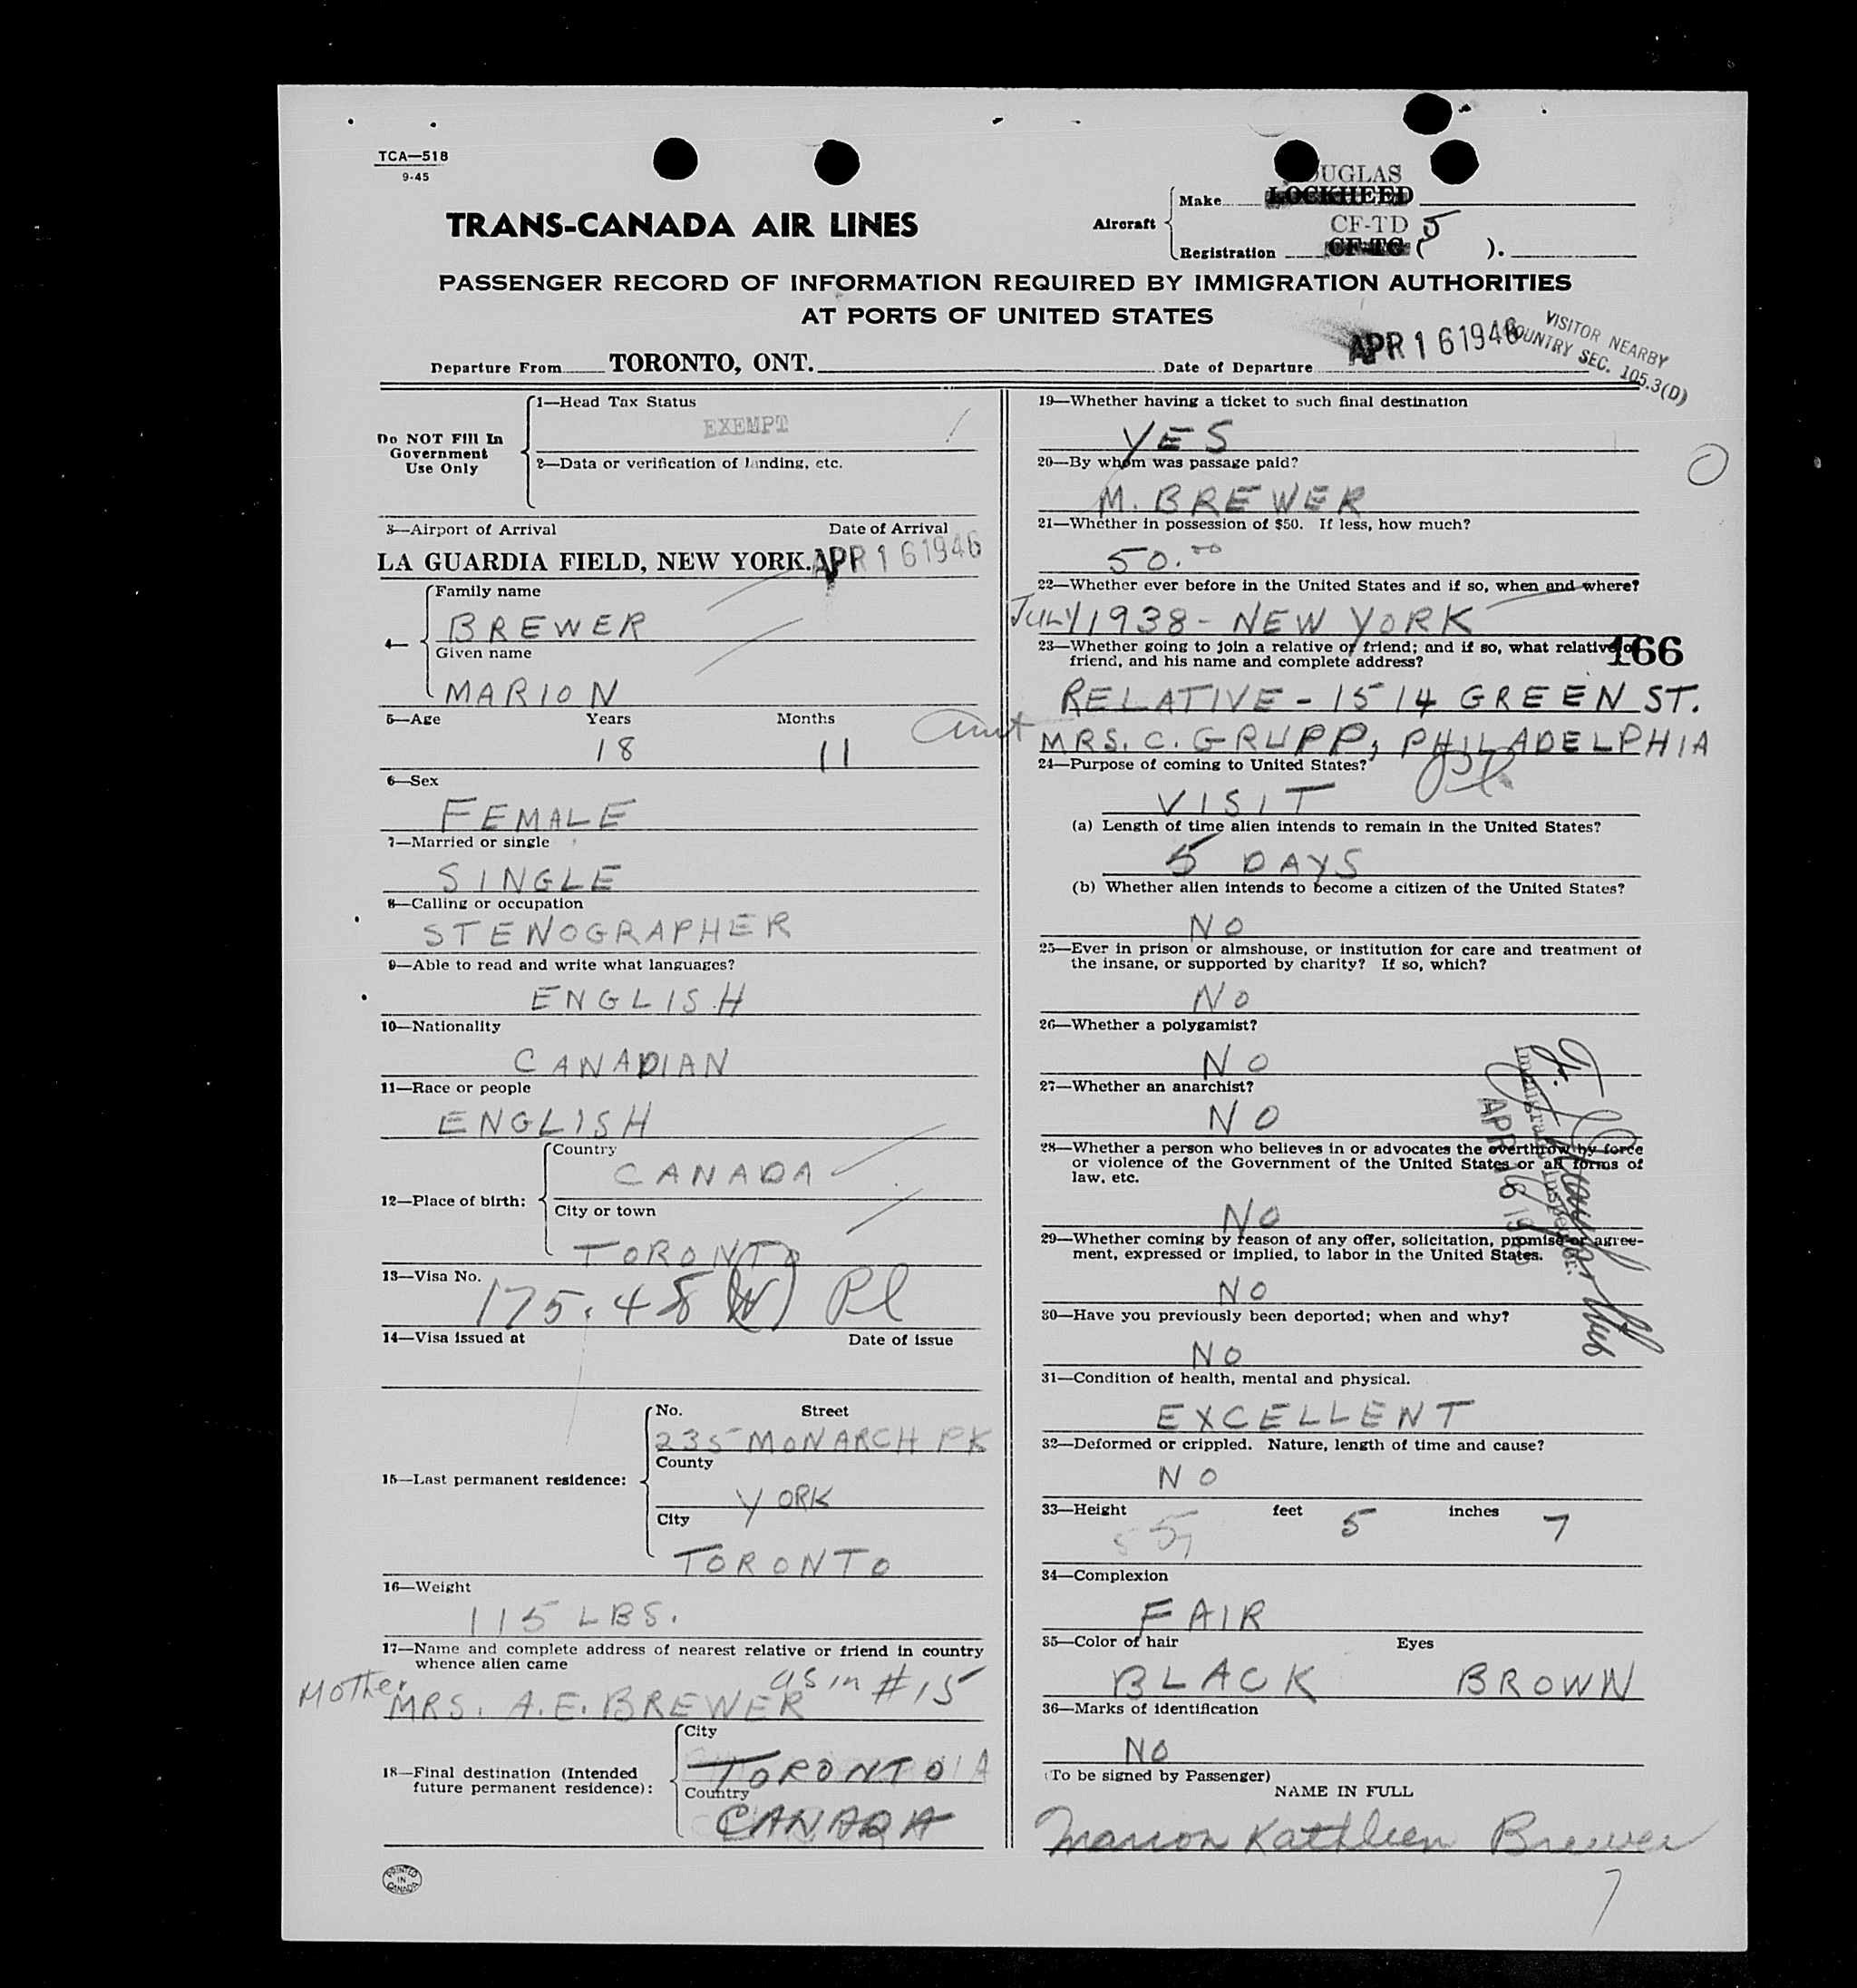 TCA—518
9-45
DOUGLAS
Make LOCKHEED
TRANS-CANADA AIR LINES
Aircraft
CF-TD 5
Registration CF-TC ( ).
PASSENGER RECORD OF INFORMATION REQUIRED BY IMMIGRATION AUTHORITIES
AT PORTS OF UNITED STATES
VISITOR NEARBY
COUNTRY SEC. 105.3(D)
Departure From TORONTO, ONT. Date of Departure APR 16 1946
Do NOT Fill In
Government
Use Only
1—Head Tax Status
EXEMPT
2—Data or verification of landing, etc.
3—Airport of Arrival Date of Arrival
LA GUARDIA FIELD, NEW YORK. APR 16 1946
4—
Family name
BREWER
Given name
MARION
5—Age Years Months
18 11
6—Sex
FEMALE
7—Married or single
SINGLE
8—Calling or occupation
STENOGRAPHER
9—Able to read and write what languages?
ENGLISH
10—Nationality
CANADIAN
11—Race or people
ENGLISH
12—Place of birth:
Country
CANADA
City or town
TORONTO
13—Visa No.
175.48 (W) Pl
14—Visa issued at Date of issue
15—Last permanent residence:
No. Street
235 MONARCH PK
County
YORK
City
TORONTO
16—Weight
115 LBS.
17—Name and complete address of nearest relative or friend in country
whence alien came
as in #15
Mother MRS. A.E. BREWER
18—Final destination (Intended
future permanent residence):
City
TORONTO
Country
CANADA
PRINTED
IN
CANADA
19—Whether having a ticket to such final destination
YES
20—By whom was passage paid?
M. BREWER
21—Whether in possession of $50. If less, how much?
50.00
22—Whether ever before in the United States and if so, when and where?
JULY 1938 - NEW YORK
23—Whether going to join a relative or friend; and if so, what relative or
friend, and his name and complete address?
166
RELATIVE - 1514 GREEN ST.
aunt MRS. C. GRUPP, PHILADELPHIA
24—Purpose of coming to United States?
Pl
VISIT
(a) Length of time alien intends to remain in the United States?
5 DAYS
(b) Whether alien intends to become a citizen of the United States?
NO
25—Ever in prison or almshouse, or institution for care and treatment of
the insane, or supported by charity? If so, which?
NO
26—Whether a polygamist?
NO
27—Whether an anarchist?
NO
Immigrant Inspector.
APR 16 19
28—Whether a person who believes in or advocates the overthrow by force
or violence of the Government of the United States or all forms of
law, etc.
NO
29—Whether coming by reason of any offer, solicitation, promise or agree-
ment, expressed or implied, to labor in the United States.
NO
30—Have you previously been deported; when and why?
NO
31—Condition of health, mental and physical.
EXCELLENT
32—Deformed or crippled. Nature, length of time and cause?
NO
33—Height feet 5 inches 7
34—Complexion
FAIR
35—Color of hair Eyes
BLACK BROWN
36—Marks of identification
NO
(To be signed by Passenger)
NAME IN FULL
Marion Kathleen Brewer